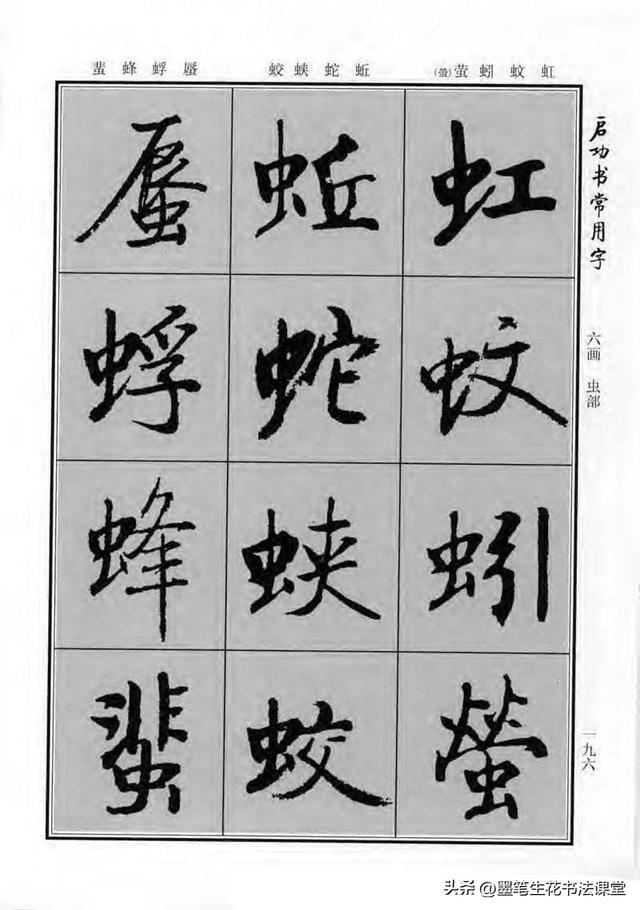 启功书常用字
六画 虫部
一九六
虹 蚊 蚓 萤(螢)
蚯 蛇 蛱 蛟
蜃 蜉 蜂 蜚
虹
蚊
蚓
螢
蚯
蛇
蛱
蛟
蜃
蜉
蜂
蜚
头条 @墨笔生花书法课堂